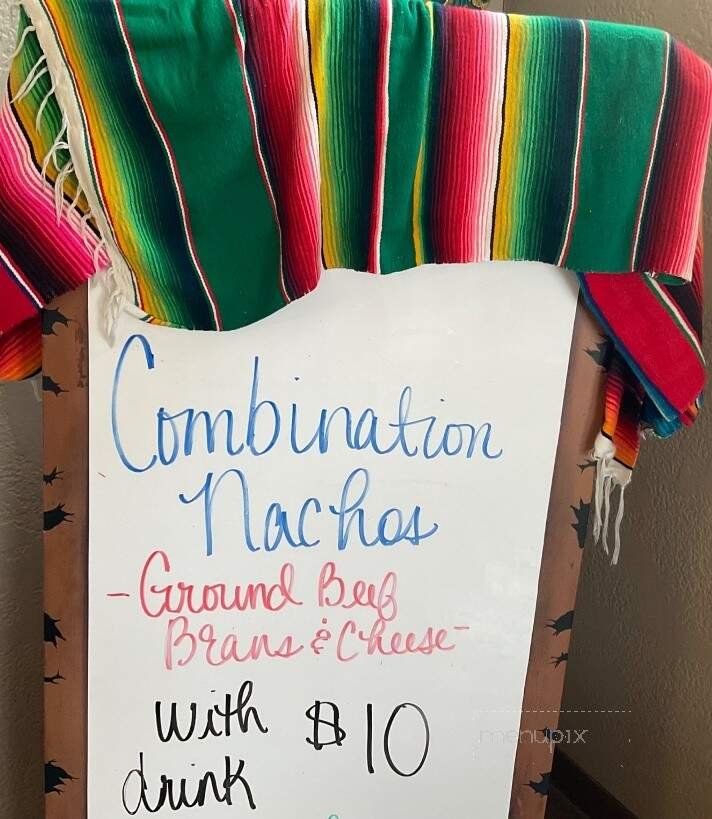 Combination
Nachos
- Ground Beef
Beans & Cheese -
With $10
drink
menupix